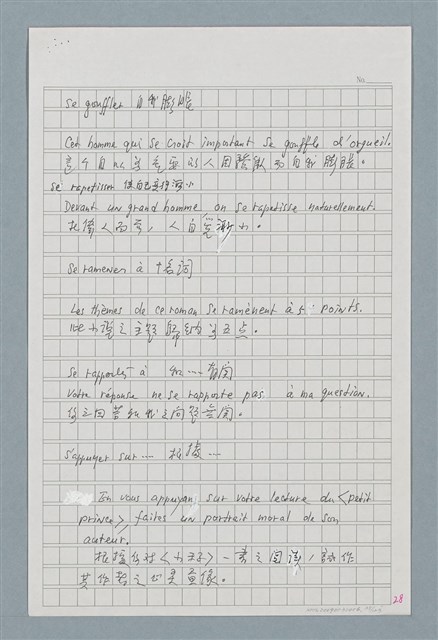 No.
se gonffler 自我膨脹
Cet homme qui se croit important se gonffle d'orgueil.
這个自以為重要的人因驕傲而自我膨脹。
se rapetisser 使自己變得渺小
Devant un grand homme on se rapetisse naturellement.
在偉人面前,人自覺渺小。
se ramener à + 名詞
Les thèmes de ce roman se ramènent à 5 points.
此小說之主題歸納為五点。
se rapporter à 和……有関
Votre réponse ne se rapporte pas à ma question.
你之回答和我之问題無関。
s'appuyer sur .... 根據…
En vous appuyant sur votre lecture du <petit
prince>, faites un portrait moral de son
auteur.
根據你对<小王子>一書之閱讀,試作
其作者之心灵畫像。
28